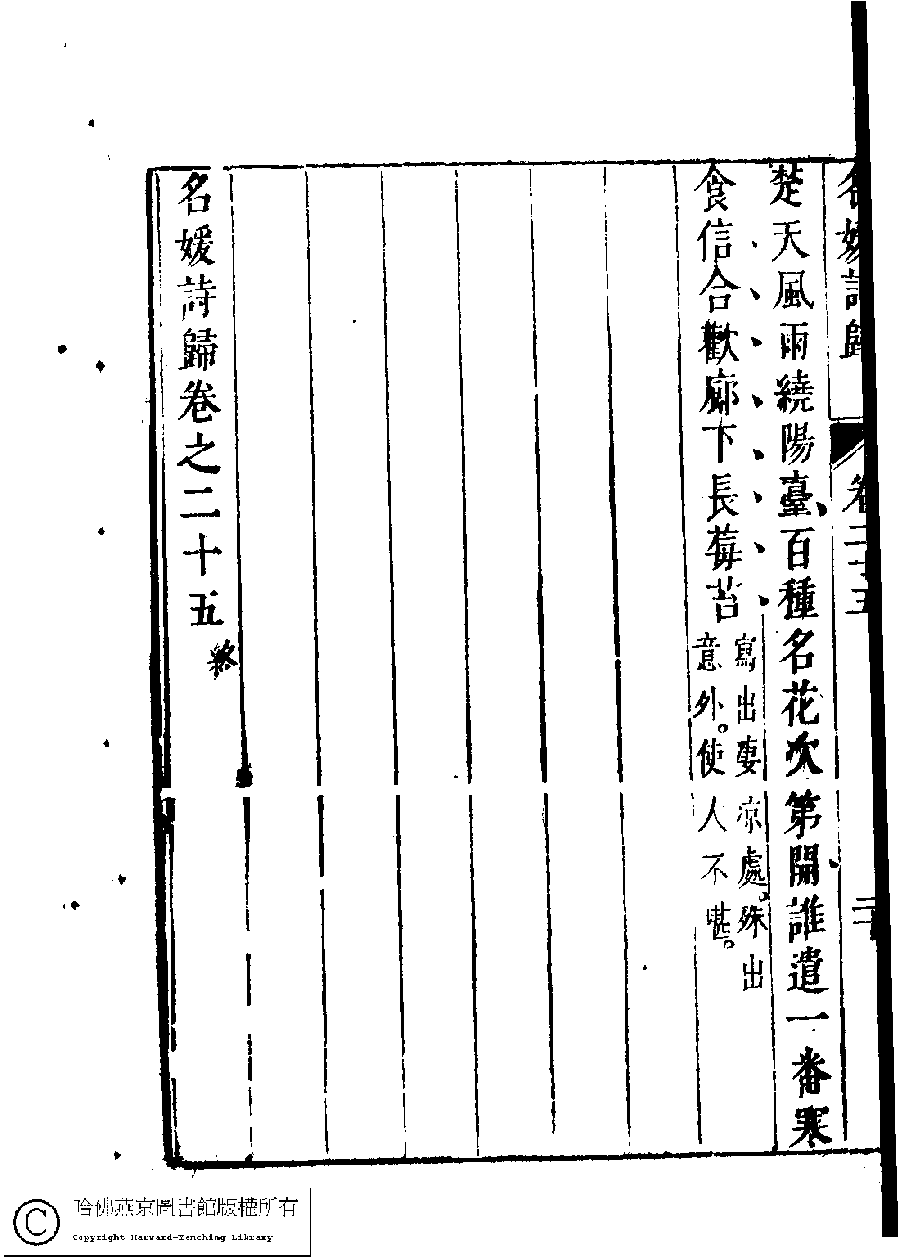 名媛詩歸 卷二十五
楚天風雨繞陽臺百種名花次第開誰遣一番寒
食信合歡廊下長莓苔
寫出凄凉處殊出
意外。使人不堪。
名媛詩歸卷之二十五
終
哈佛燕京圖書館版權所有
Copyright Harvard-Yenching Library